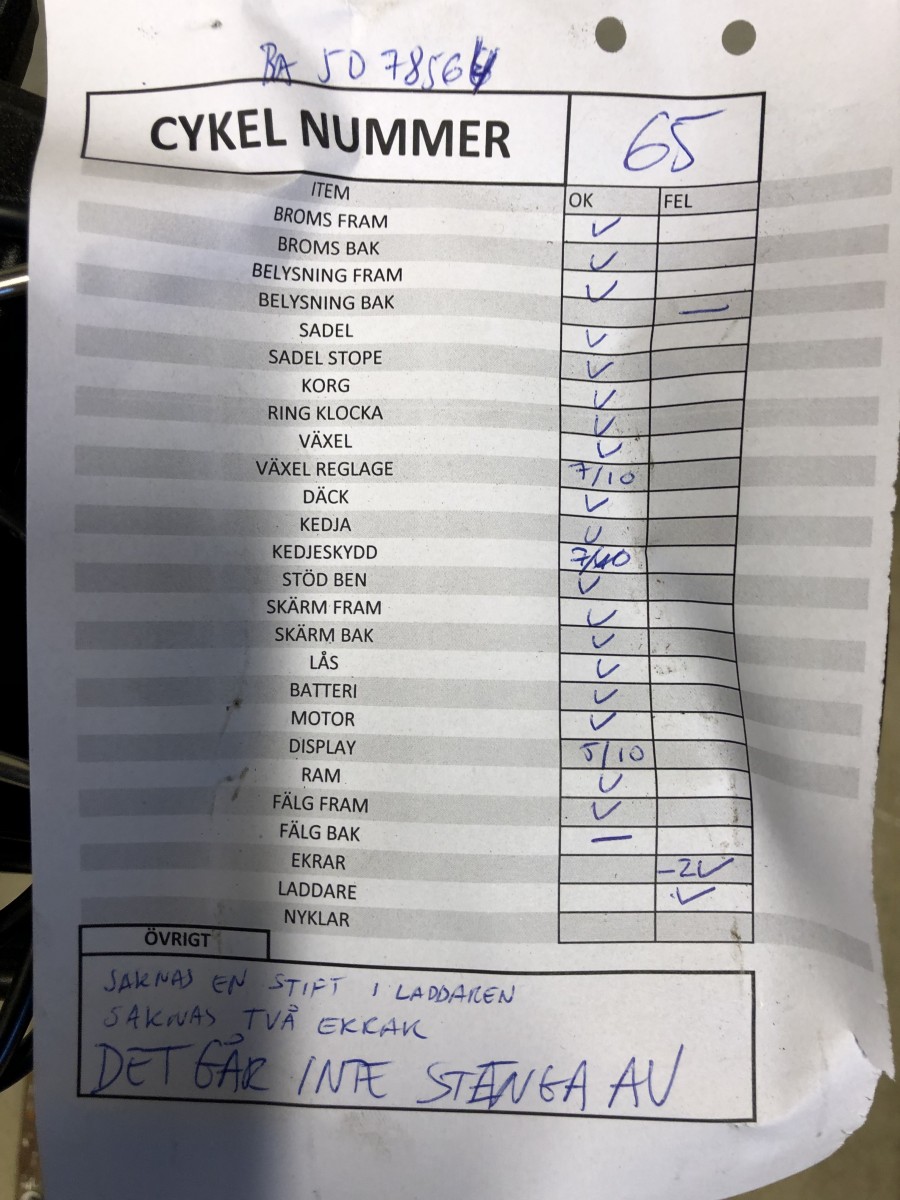 BA 5D 7856
CYKEL NUMMER 65
ITEM OK FEL
BROMS FRAM ✓
BROMS BAK ✓
BELYSNING FRAM ✓
BELYSNING BAK —
SADEL ✓
SADEL STOPE ✓
KORG ✓
RING KLOCKA ✓
VÄXEL ✓
VÄXEL REGLAGE 7/10
DÄCK ✓
KEDJA ✓
KEDJESKYDD 7/10
STÖD BEN ✓
SKÄRM FRAM ✓
SKÄRM BAK ✓
LÅS ✓
BATTERI ✓
MOTOR ✓
DISPLAY 5/10
RAM ✓
FÄLG FRAM ✓
FÄLG BAK —
EKRAR -2 ✓
LADDARE ✓
NYKLAR
ÖVRIGT
SAKNAS EN STIFT I LADDAREN
SAKNAS TVÅ EKRAR
DET GÅR INTE STÄNGA AV